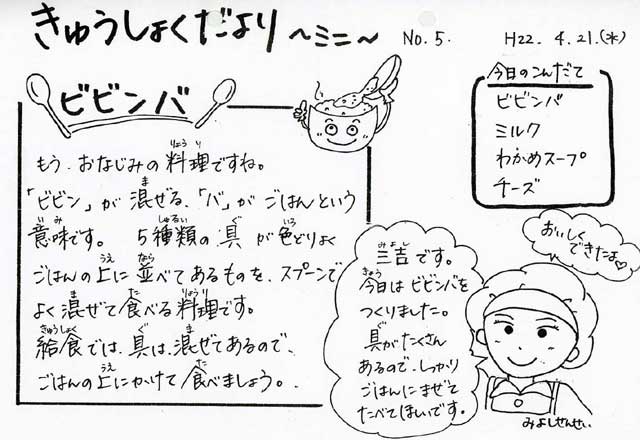 きゅうしょくだより 〜ミニ〜 No.5. H22. 4.21.(水)
ビビンバ
もう、おなじみの料理ですね。
「ビビン」が混ぜる、「バ」がごはんという
意味です。 5種類の具が色どりよく
ごはんの上に並べてあるものを、スプーンで
よく混ぜて食べる料理です。
給食では、具は、混ぜてあるので、
ごはんの上にかけて食べましょう。
今日のこんだて
ビビンバ
ミルク
わかめスープ
チーズ
三吉です。
今日はビビンバを
つくりました。
具がたくさん
あるので、しっかり
ごはんにまぜて
たべてほしいです。
おいしく
できたよ♡
みよしせんせい